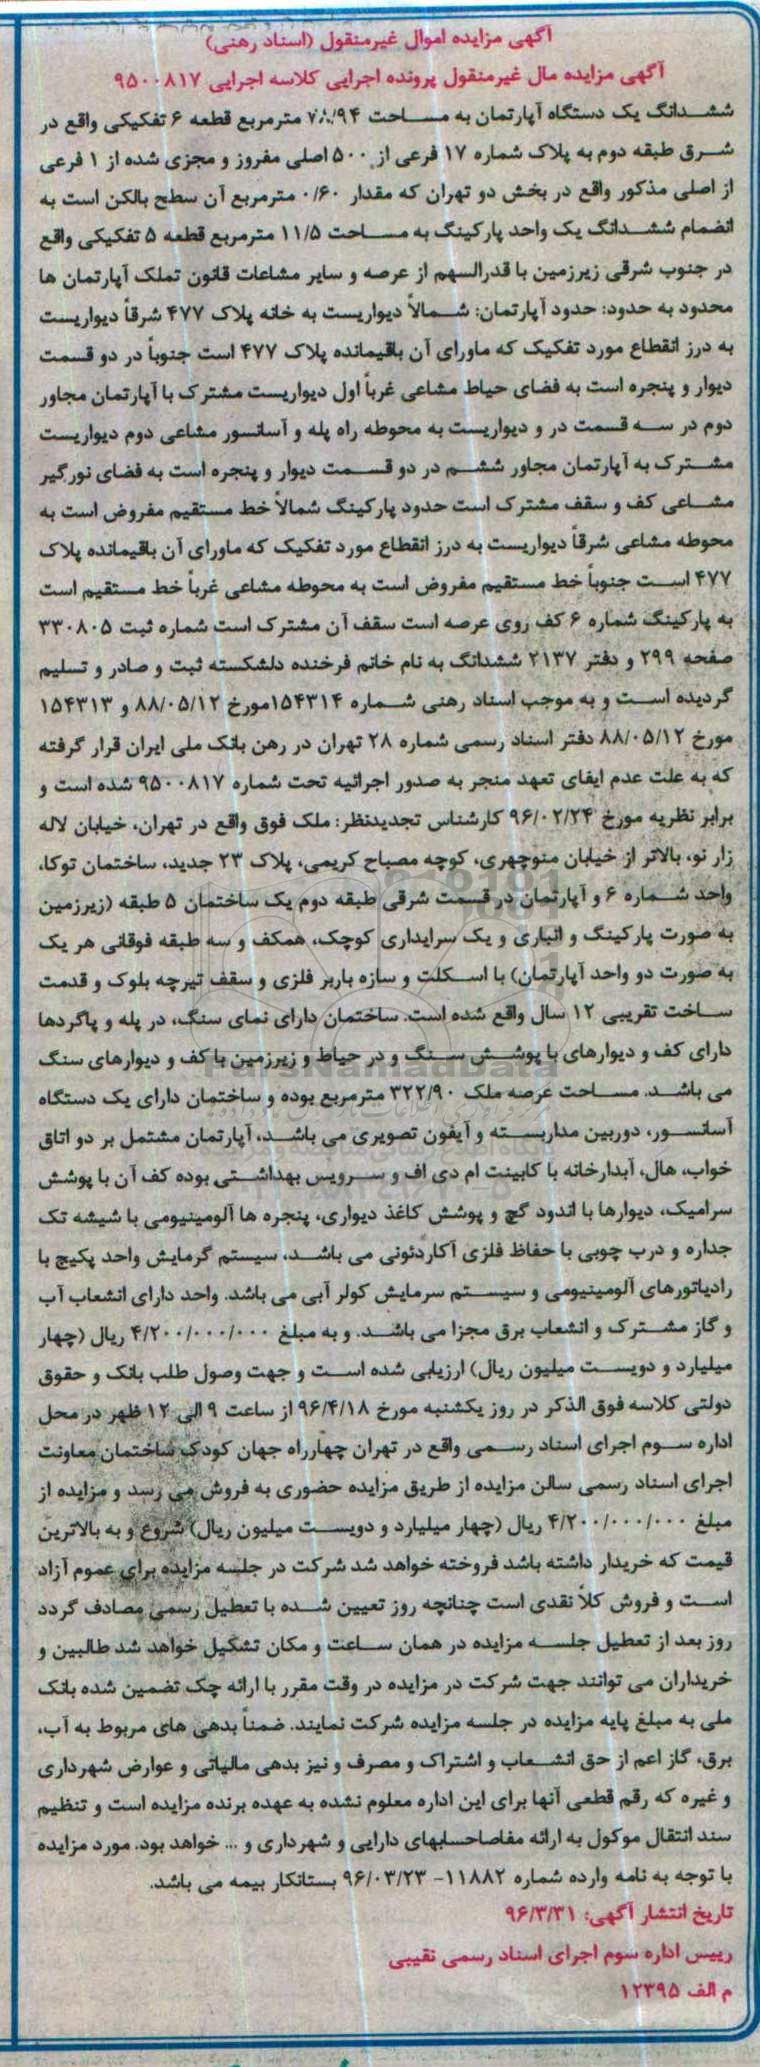 آگهی مزایده اموال غیرمنقول (اسناد رهنی)
آگهی مزایده مال غیرمنقول پرونده اجرایی کلاسه اجرایی ۹۵۰۰۸۱۷
ششدانگ یک دستگاه آپارتمان به مساحت ۷۸/۹۴ مترمربع قطعه ۶ تفکیکی واقع در
شرق طبقه دوم به پلاک شماره ۱۷ فرعی از ۵۰۰ اصلی مفروز و مجزی شده از ۱ فرعی
از اصلی مذکور واقع در بخش دو تهران که مقدار ۰/۶۰ مترمربع آن سطح بالکن است به
انضمام ششدانگ یک واحد پارکینگ به مساحت ۱۱/۵ مترمربع قطعه ۵ تفکیکی واقع
در جنوب شرقی زیرزمین با قدرالسهم از عرصه و سایر مشاعات قانون تملک آپارتمان ها
محدود به حدود: حدود آپارتمان: شمالاً دیواریست به خانه پلاک ۴۷۷ شرقاً دیواریست
به درز انقطاع مورد تفکیک که ماورای آن باقیمانده پلاک ۴۷۷ است جنوباً در دو قسمت
دیوار و پنجره است به فضای حیاط مشاعی غرباً اول دیواریست مشترک با آپارتمان مجاور
دوم در سه قسمت در و دیواریست به محوطه راه پله و آسانسور مشاعی دوم دیواریست
مشترک به آپارتمان مجاور ششم در دو قسمت دیوار و پنجره است به فضای نورگیر
مشاعی کف و سقف مشترک است حدود پارکینگ شمالاً خط مستقیم مفروض است به
محوطه مشاعی شرقاً دیواریست به درز انقطاع مورد تفکیک که ماورای آن باقیمانده پلاک
۴۷۷ است جنوباً خط مستقیم مفروض است به محوطه مشاعی غرباً خط مستقیم است
به پارکینگ شماره ۶ کف روی عرصه است سقف آن مشترک است شماره ثبت ۳۳۰۸۰۵
صفحه ۲۹۹ و دفتر ۲۱۳۷ ششدانگ به نام خانم فرخنده دلشکسته ثبت و صادر و تسلیم
گردیده است و به موجب اسناد رهنی شماره ۱۵۴۳۱۴مورخ ۸۸/۰۵/۱۲ و ۱۵۴۳۱۳
مورخ ۸۸/۰۵/۱۲ دفتر اسناد رسمی شماره ۲۸ تهران در رهن بانک ملی ایران قرار گرفته
که به علت عدم ایفای تعهد منجر به صدور اجرائیه تحت شماره ۹۵۰۰۸۱۷ شده است و
برابر نظریه مورخ ۹۶/۰۲/۲۴ کارشناس تجدیدنظر: ملک فوق واقع در تهران، خیابان لاله
زار نو، بالاتر از خیابان منوچهری، کوچه مصباح کریمی، پلاک ۲۳ جدید، ساختمان توکا،
واحد شماره ۶ و آپارتمان در قسمت شرقی طبقه دوم یک ساختمان ۵ طبقه (زیرزمین
به صورت پارکینگ و انباری و یک سرایداری کوچک، همکف و سه طبقه فوقانی هر یک
به صورت دو واحد آپارتمان) با اسکلت و سازه باربر فلزی و سقف تیرچه بلوک و قدمت
ساخت تقریبی ۱۲ سال واقع شده است. ساختمان دارای نمای سنگ، در پله و پاگردها
دارای کف و دیوارهای با پوشش سنگ و در حیاط و زیرزمین با کف و دیوارهای سنگ
می باشد. مساحت عرصه ملک ۳۲۲/۹۰ مترمربع بوده و ساختمان دارای یک دستگاه
آسانسور، دوربین مداربسته و آیفون تصویری می باشد، آپارتمان مشتمل بر دو اتاق
خواب، هال، آبدارخانه با کابینت ام دی اف و سرویس بهداشتی بوده کف آن با پوشش
سرامیک، دیوارها با اندود گچ و پوشش کاغذ دیواری، پنجره ها آلومینیومی با شیشه تک
جداره و درب چوبی با حفاظ فلزی آکاردئونی می باشد، سیستم گرمایش واحد پکیج با
رادیاتورهای آلومینیومی و سیستم سرمایش کولر آبی می باشد. واحد دارای انشعاب آب
و گاز مشترک و انشعاب برق مجزا می باشد. و به مبلغ ۴/۲۰۰/۰۰۰/۰۰۰ ریال (چهار
میلیارد و دویست میلیون ریال) ارزیابی شده است و جهت وصول طلب بانک و حقوق
دولتی کلاسه فوق الذکر در روز یکشنبه مورخ ۹۶/۴/۱۸ از ساعت ۹ الی ۱۲ ظهر در محل
اداره سوم اجرای اسناد رسمی واقع در تهران چهارراه جهان کودک ساختمان معاونت
اجرای اسناد رسمی سالن مزایده از طریق مزایده حضوری به فروش می رسد و مزایده از
مبلغ ۴/۲۰۰/۰۰۰/۰۰۰ ریال (چهار میلیارد و دویست میلیون ریال) شروع و به بالاترین
قیمت که خریدار داشته باشد فروخته خواهد شد شرکت در جلسه مزایده برای عموم آزاد
است و فروش کلاً نقدی است چنانچه روز تعیین شده با تعطیل رسمی مصادف گردد
روز بعد از تعطیل جلسه مزایده در همان ساعت و مکان تشکیل خواهد شد طالبین و
خریداران می توانند جهت شرکت در مزایده در وقت مقرر با ارائه چک تضمین شده بانک
ملی به مبلغ پایه مزایده در جلسه مزایده شرکت نمایند. ضمناً بدهی های مربوط به آب،
برق، گاز اعم از حق انشعاب و اشتراک و مصرف و نیز بدهی مالیاتی و عوارض شهرداری
و غیره که رقم قطعی آنها برای این اداره معلوم نشده به عهده برنده مزایده است و تنظیم
سند انتقال موکول به ارائه مفاصاحسابهای دارایی و شهرداری و ... خواهد بود. مورد مزایده
با توجه به نامه وارده شماره ۱۱۸۸۲- ۹۶/۰۳/۲۳ بستانکار بیمه می باشد.
تاریخ انتشار آگهی: ۹۶/۳/۳۱
رییس اداره سوم اجرای اسناد رسمی نقیبی
م الف ۱۲۳۹۵